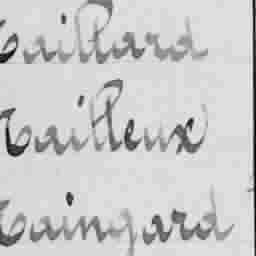 Taillard
Tailleux
Taingard